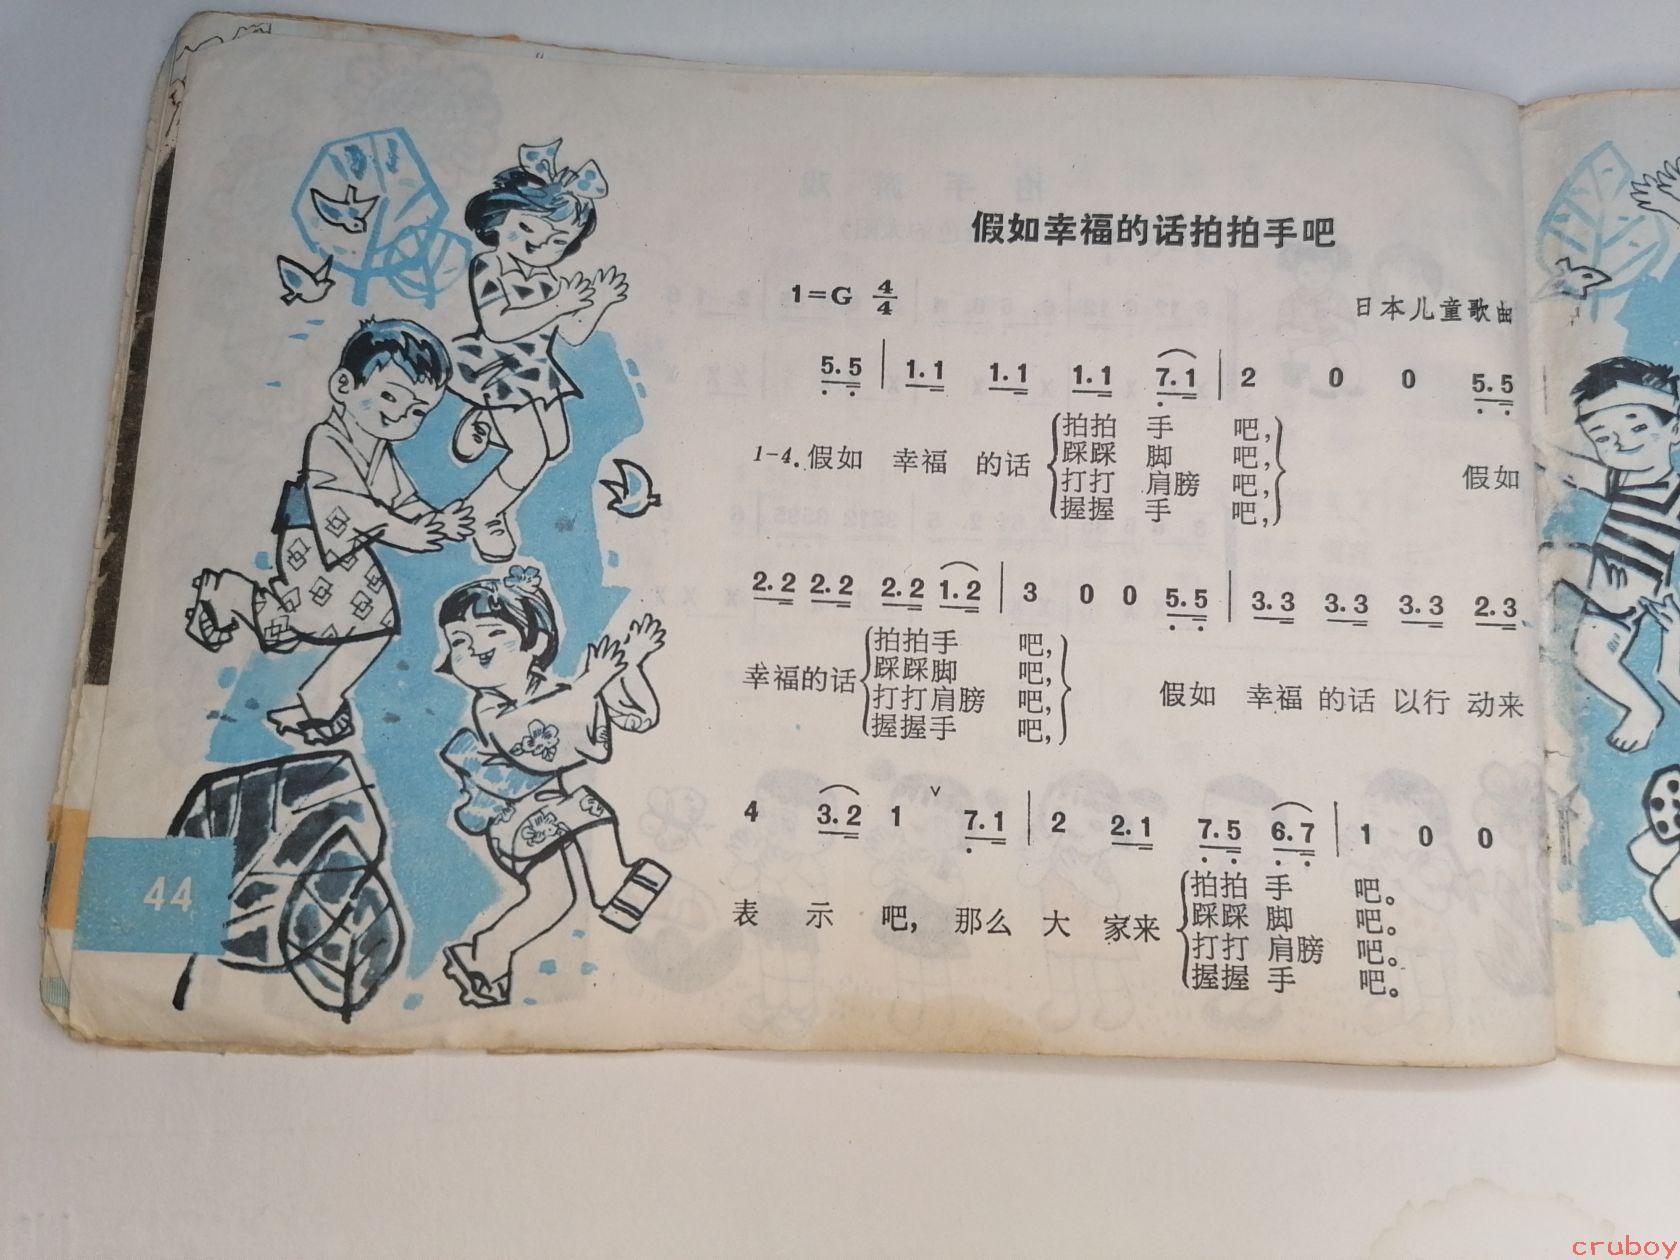 假如幸福的话拍拍手吧
1=G 4/4
日本儿童歌曲
5.5 | 1.1 1.1 1.1 7.1 | 2 0 0 5.5
1-4.假如 幸福 的话 拍拍 手 吧， 假如
踩踩 脚 吧，
打打 肩膀 吧，
握握 手 吧，
2.2 2.2 2.2 1.2 | 3 0 0 5.5 | 3.3 3.3 3.3 2.3
幸福的话 拍拍手 吧， 假如 幸福 的话 以行 动来
踩踩脚 吧，
打打肩膀 吧，
握握手 吧，
4 3.2 1 ∨ 7.1 | 2 2.1 7.5 6.7 | 1 0 0
表 示 吧， 那么 大 家来 拍拍 手 吧。
踩踩 脚 吧。
打打 肩膀 吧。
握握 手 吧。
44
cruboy